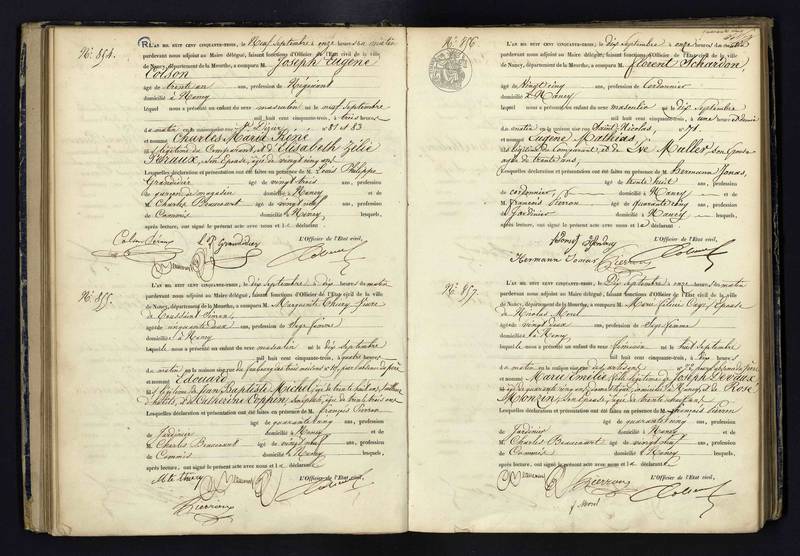 N° 854.
L'AN MIL HUIT CENT CINQUANTE-TROIS, le Neuf Septembre à onze heures du matin
pardevant nous adjoint au Maire délégué, faisant fonctions d'Officier de l'Etat civil de la ville
de Nancy, département de la Meurthe, a comparu M. Joseph Eugène
Colson
âgé de trente un ans, profession de Négociant
domicilié à Nancy
lequel nous a présenté un enfant du sexe masculin né le neuf Septembre
mil huit cent cinquante-trois, à trois heures
du matin en la maison sise rue St Dizier n° 81 et 83
et nommé Charles Marie René
fils légitime du Comparant, et d'Elisabeth Zélie
son épouse, âgée de vingt cinq ans
Lesquelles déclaration et présentation ont été faites en présence de M. Louis Philippe
Grandidier âgé de vingt trois ans, profession
de garçon de magasin domicilié à Nancy et de
M. Charles Beaucourt âgé de vingt neuf ans, profession
de Commis domicilié à Nancy lesquels,
après lecture, ont signé le présent acte avec nous et le déclarant
L'Officier de l'Etat civil,
L. P. Grandidier
N° 855.
L'AN MIL HUIT CENT CINQUANTE-TROIS, le dix Septembre à dix heures du matin
pardevant nous adjoint au Maire délégué, faisant fonctions d'Officier de l'Etat civil de la ville
de Nancy, département de la Meurthe, a comparu M. Marguerite Thiéry veuve
de Toussaint Simon,
âgée de cinquante deux ans, profession de Sage femme
à Nancy
Laquelle nous a présenté un enfant du sexe masculin né le dix Septembre
mil huit cent cinquante-trois, à quatre heures
du matin en la maison sise rue du faubourg des trois maisons n°
et nommé Edouard
fils légitime de Jean Baptiste Michel, âgé de trente huit ans,
et de Catherine son épouse, âgée de trente trois ans
Lesquelles déclaration et présentation ont été faites en présence de M. François Pierron
âgé de quarante cinq ans, profession
de Jardinier domicilié à Nancy et de
M. Charles Beaucourt âgé de vingt neuf ans, profession
de Commis domicilié à Nancy
après lecture, ont signé le présent acte avec nous et la déclarante
L'Officier de l'Etat civil,
Pierron
N° 856
L'AN MIL HUIT CENT CINQUANTE-TROIS, le dix Septembre à onze heures du matin
pardevant nous adjoint au Maire délégué, faisant fonctions d'Officier de l'Etat civil de la ville
de Nancy, département de la Meurthe, a comparu M. Florent Schardon,
âgé de vingt cinq ans, profession de Cordonnier
domicilié à Nancy
lequel nous a présenté un enfant du sexe masculin né le dix Septembre
mil huit cent cinquante-trois, à une heure et demie
du matin en la maison sise rue Saint Nicolas, n° 71
et nommé Eugène Mathias,
fils légitime du Comparant, et de Eve Muller, son Epouse
âgée de trente ans,
Lesquelles déclaration et présentation ont été faites en présence de M. Hermann Jomas,
âgé de trente huit ans, profession
de cordonnier, domicilié à Nancy et de
M. François Pierron âgé de quarante cinq ans, profession
de Jardinier domicilié à Nancy lesquels,
après lecture, ont signé le présent acte avec nous et le déclarant
L'Officier de l'Etat civil,
Hermann Jomas
Pierron
N° 857.
L'AN MIL HUIT CENT CINQUANTE-TROIS, le Dix Septembre à onze heures du matin
pardevant nous adjoint au Maire délégué, faisant fonctions d'Officier de l'Etat civil de la ville
de Nancy, département de la Meurthe, a comparu M. Marie Félicie Epouse
de Nicolas Morel
âgée de vingt deux ans, profession de Sage femme
à Nancy
Laquelle nous a présenté un enfant du sexe féminin né le huit Septembre
mil huit cent cinquante-trois, à dix heures
du matin en la maison sise rue des artisans n° 72
et nommé Marie Emélie fille légitime de Joseph Devaux
âgé de quarante domicilié à Nancy, et de Rose
son épouse, âgée de trente
Lesquelles déclaration et présentation ont été faites en présence de M. François Pierron
âgé de quarante cinq ans, profession
de Jardinier domicilié à Nancy et de
M. Charles Beaucourt âgé de vingt neuf ans, profession
de Commis domicilié à Nancy
après lecture, ont signé le présent acte avec nous et la déclarante
L'Officier de l'Etat civil,
Pierron
f Morel